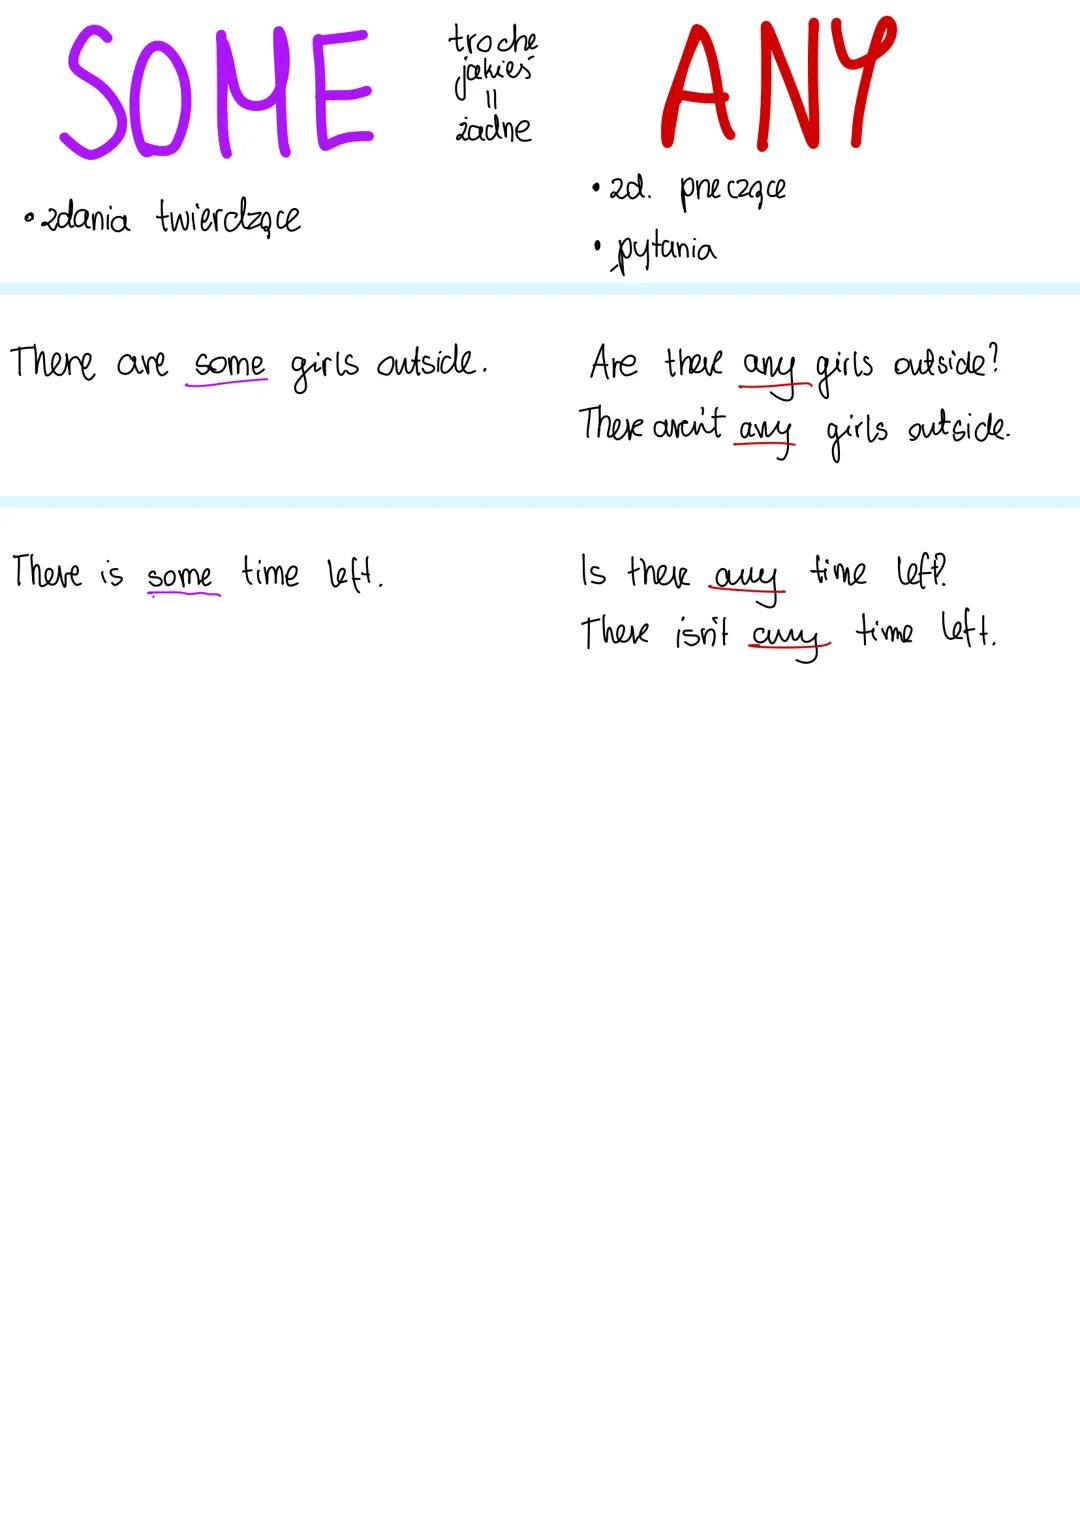 SOME
troche
jakieś
||
żadne
ANY
• zdania twierdzące
• zd. przeczące
• pytania
There are some girls outside.
Are there any girls outside?
There aren't any girls outside.
There is some time left.
Is there any time left?
There isn't any time left.